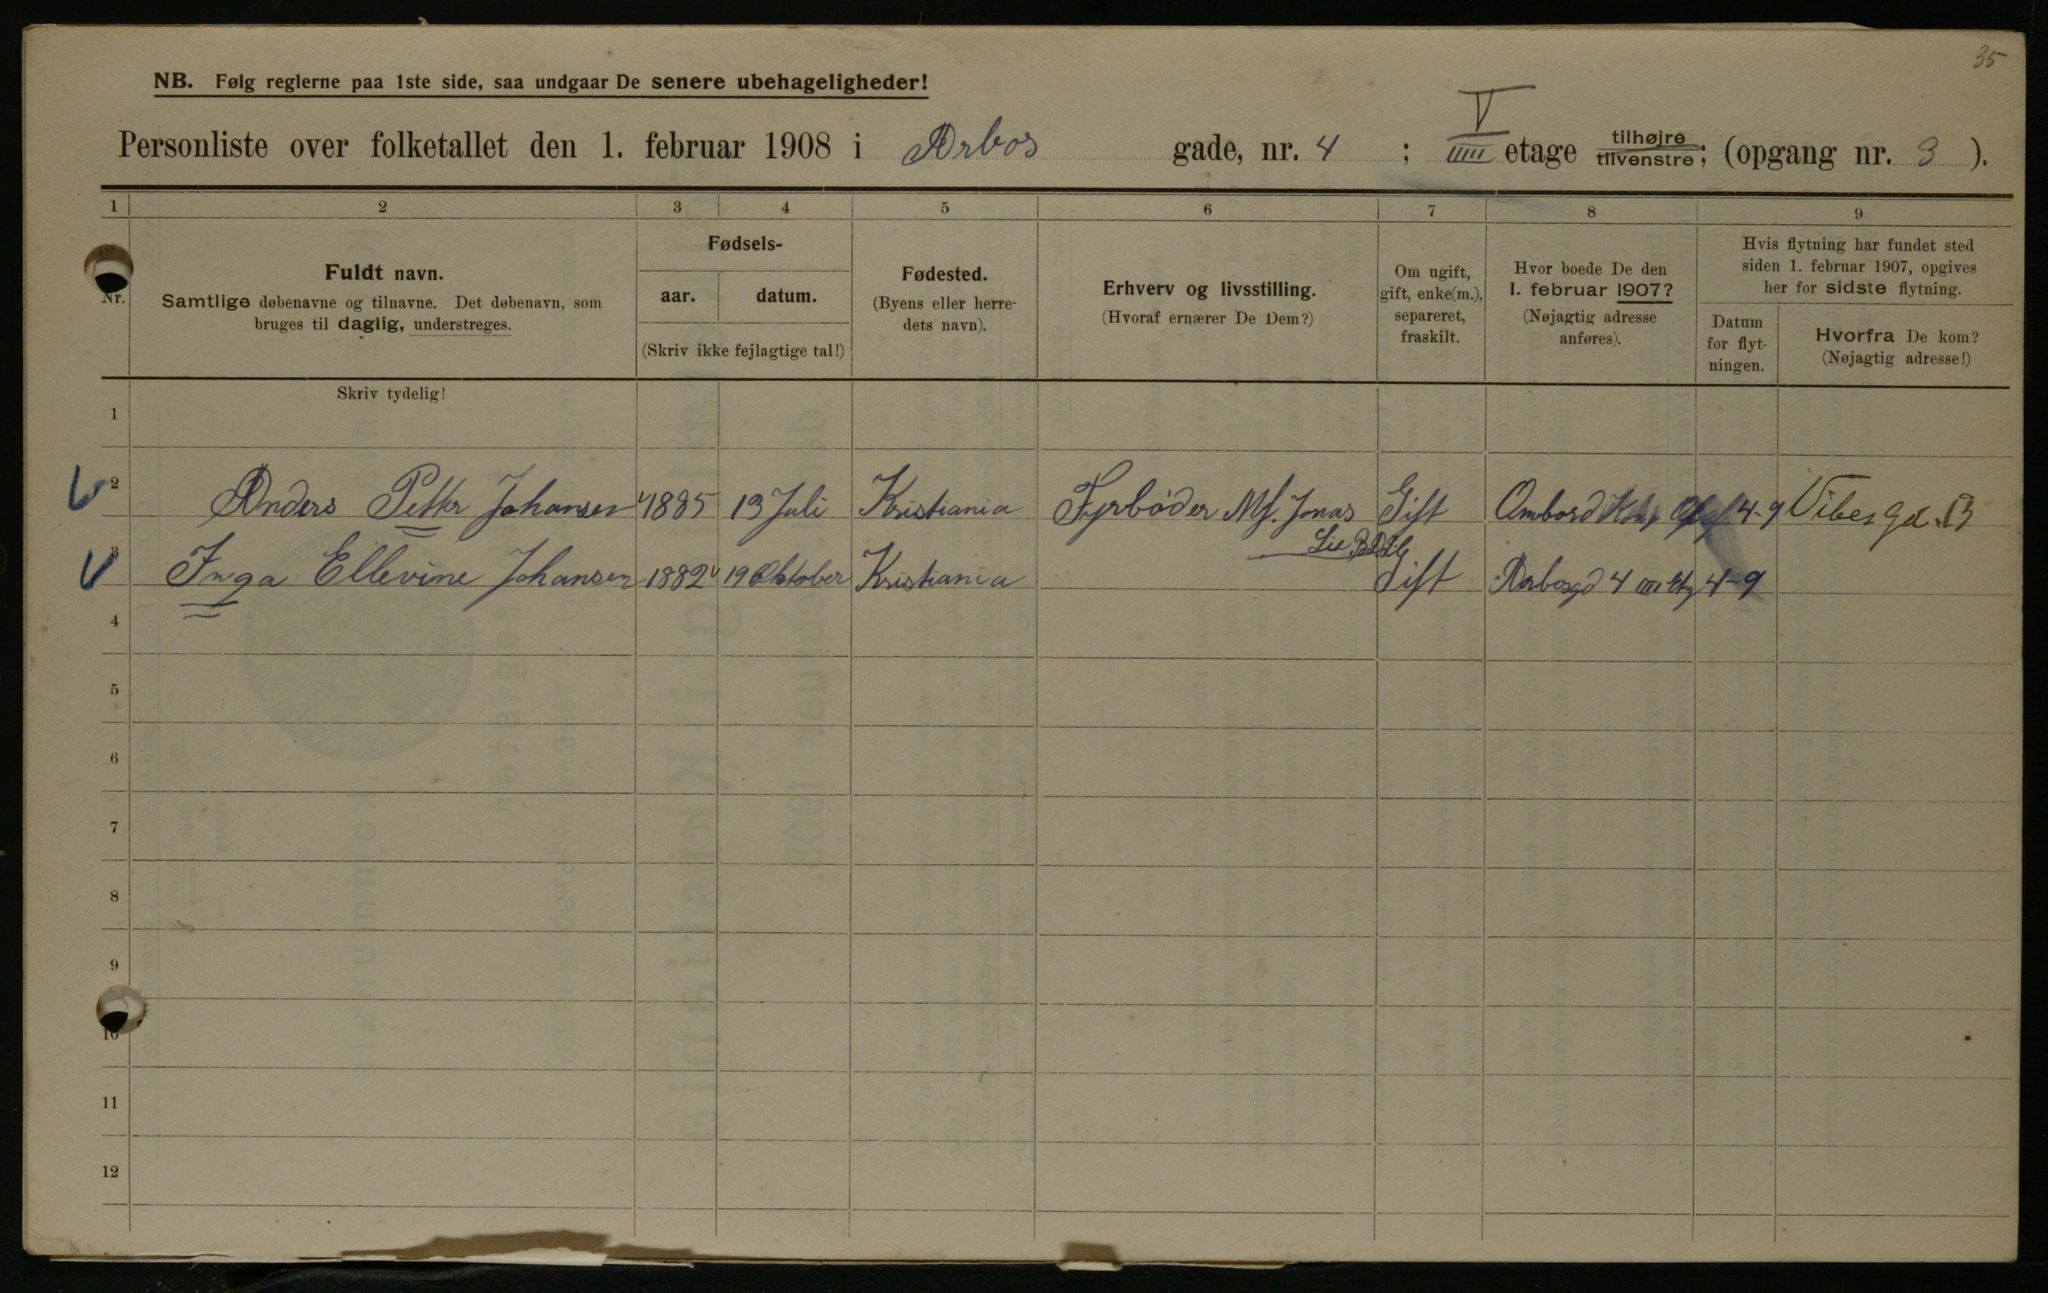 35
NB. Følg reglerne paa 1ste side, saa undgaar De senere ubehageligheder!
V
Personliste over folketallet den 1. februar 1908 i Arbos gade, nr. 4 ; III etage tilhøjre tilvenstre; (opgang nr. 3 ).
IIIII
1 2 3 4 5 6 7 8 9
Nr.
Fuldt navn.
Samtlige døbenavne og tilnavne. Det døbenavn, som
bruges til daglig, understreges.
Fødsels-
aar. datum.
(Skriv ikke fejlagtige tal!)
Fødested.
(Byens eller herre-
dets navn).
Erhverv og livsstilling.
(Hvoraf ernærer De Dem?)
Om ugift,
gift, enke(m.),
separeret,
fraskilt.
Hvor boede De den
1. februar 1907?
(Nøjagtig adresse
anføres).
Hvis flytning har fundet sted
siden 1. februar 1907, opgives
her for sidste flytning.
Datum
for flyt-
ningen.
Hvorfra De kom?
(Nøjagtig adresse!)
Skriv tydelig!
1
2 Anders Petter Johansen 1885 13 Juli Kristiania Fyrbøder M/. Jonas Gift Ombord 4-9 Vibesgd. 13
Lie
3 Inga Ellevine Johansen 1882 19 Oktober Kristiania Gift Arbosgd 4 III Etg 4-9
4
5
6
7
8
9
10
11
12